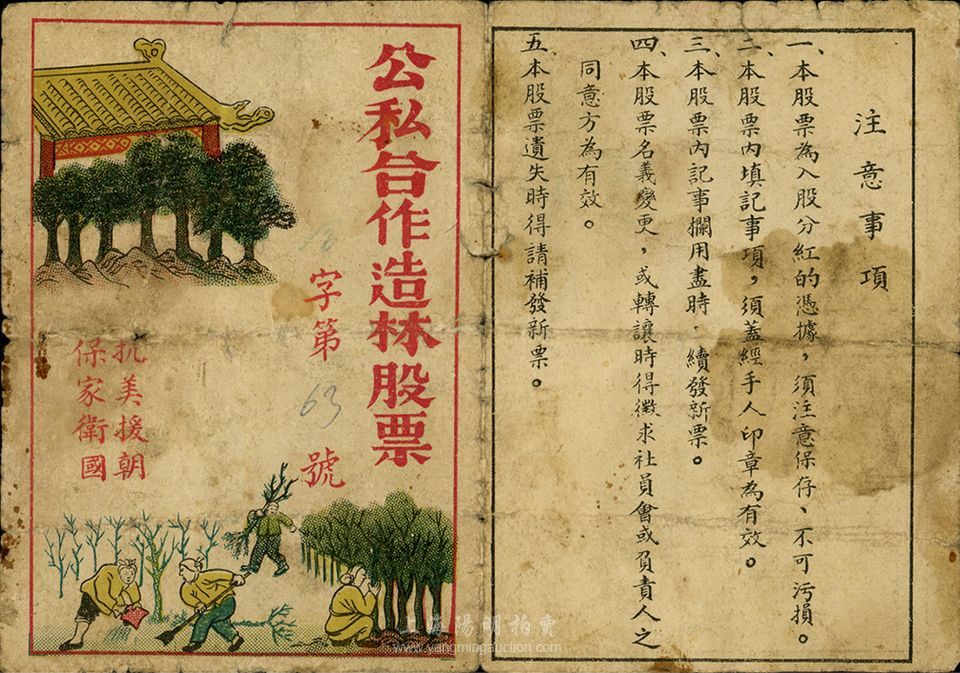 公私合作造林股票
字第63號
抗美援朝
保家衛國
注意事項
一、本股票為入股分紅的憑據，須注意保存、不可污損。
二、本股票內填記事項，須蓋經手人印章為有效。
三、本股票內記事欄用盡時．續發新票。
四、本股票名義變更，或轉讓時得徵求社員會或負責人之
同意方為有效。
五、本股票遺失時得請補發新票。
上海陽明拍賣
www.yangmingauction.com